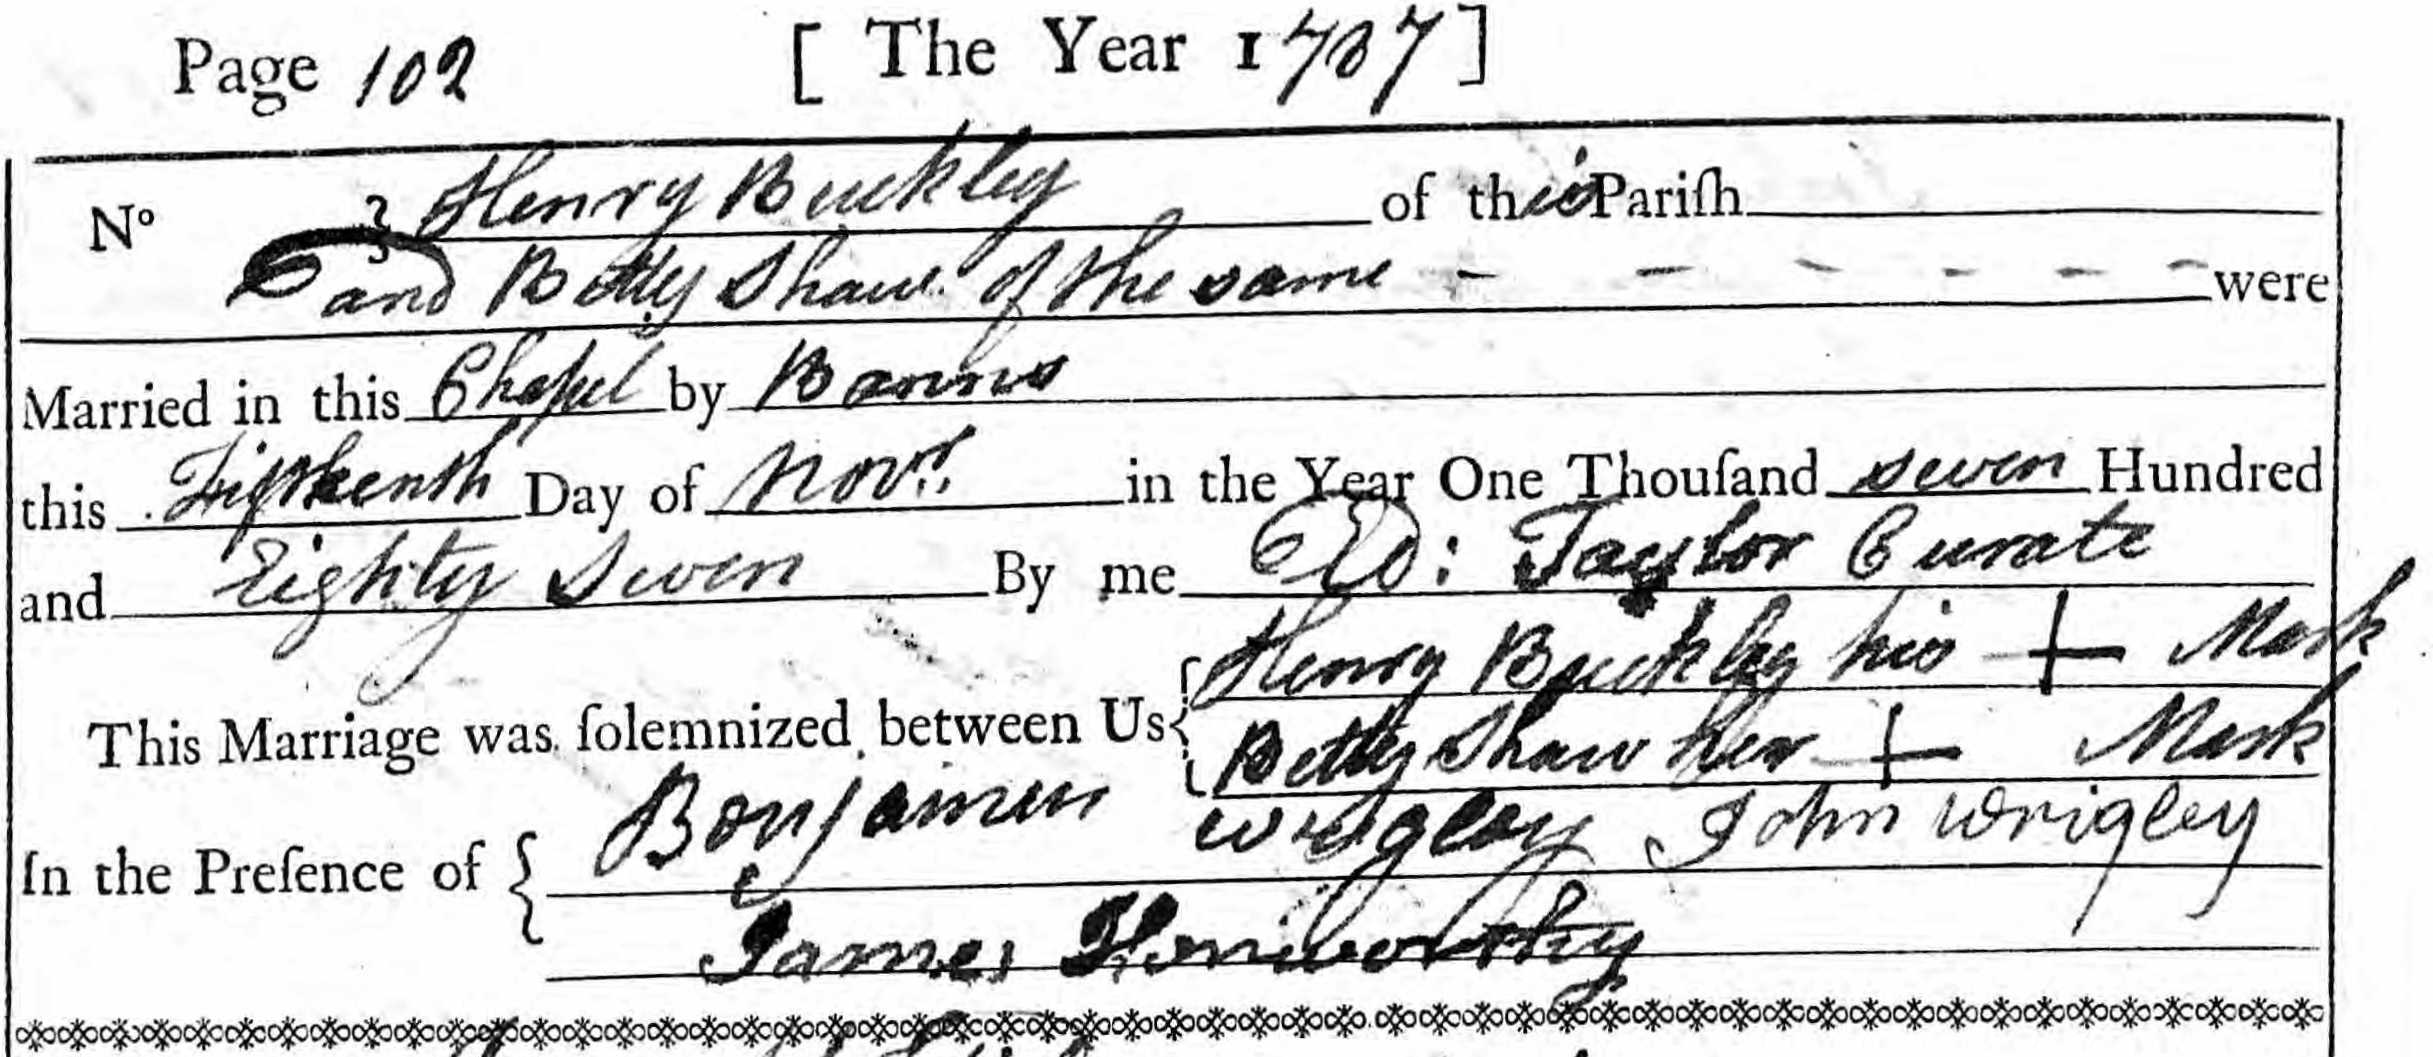 Page 102 [ The Year 1787 ]
No } Henry Buckley of this Pariſh
and Betty Shaw of the same - - - - - - were
Married in this Chapel by Banns
this Fifteenth Day of Novr. in the Year One Thouſand seven Hundred
and Eighty Seven By me Ed: Taylor Curate
This Marriage was ſolemnized between Us { Henry Buckley his + Mark
Betty Shaw her + Mark
In the Preſence of { Bonjamin Wrigley John Wrigley
James Honiworthy